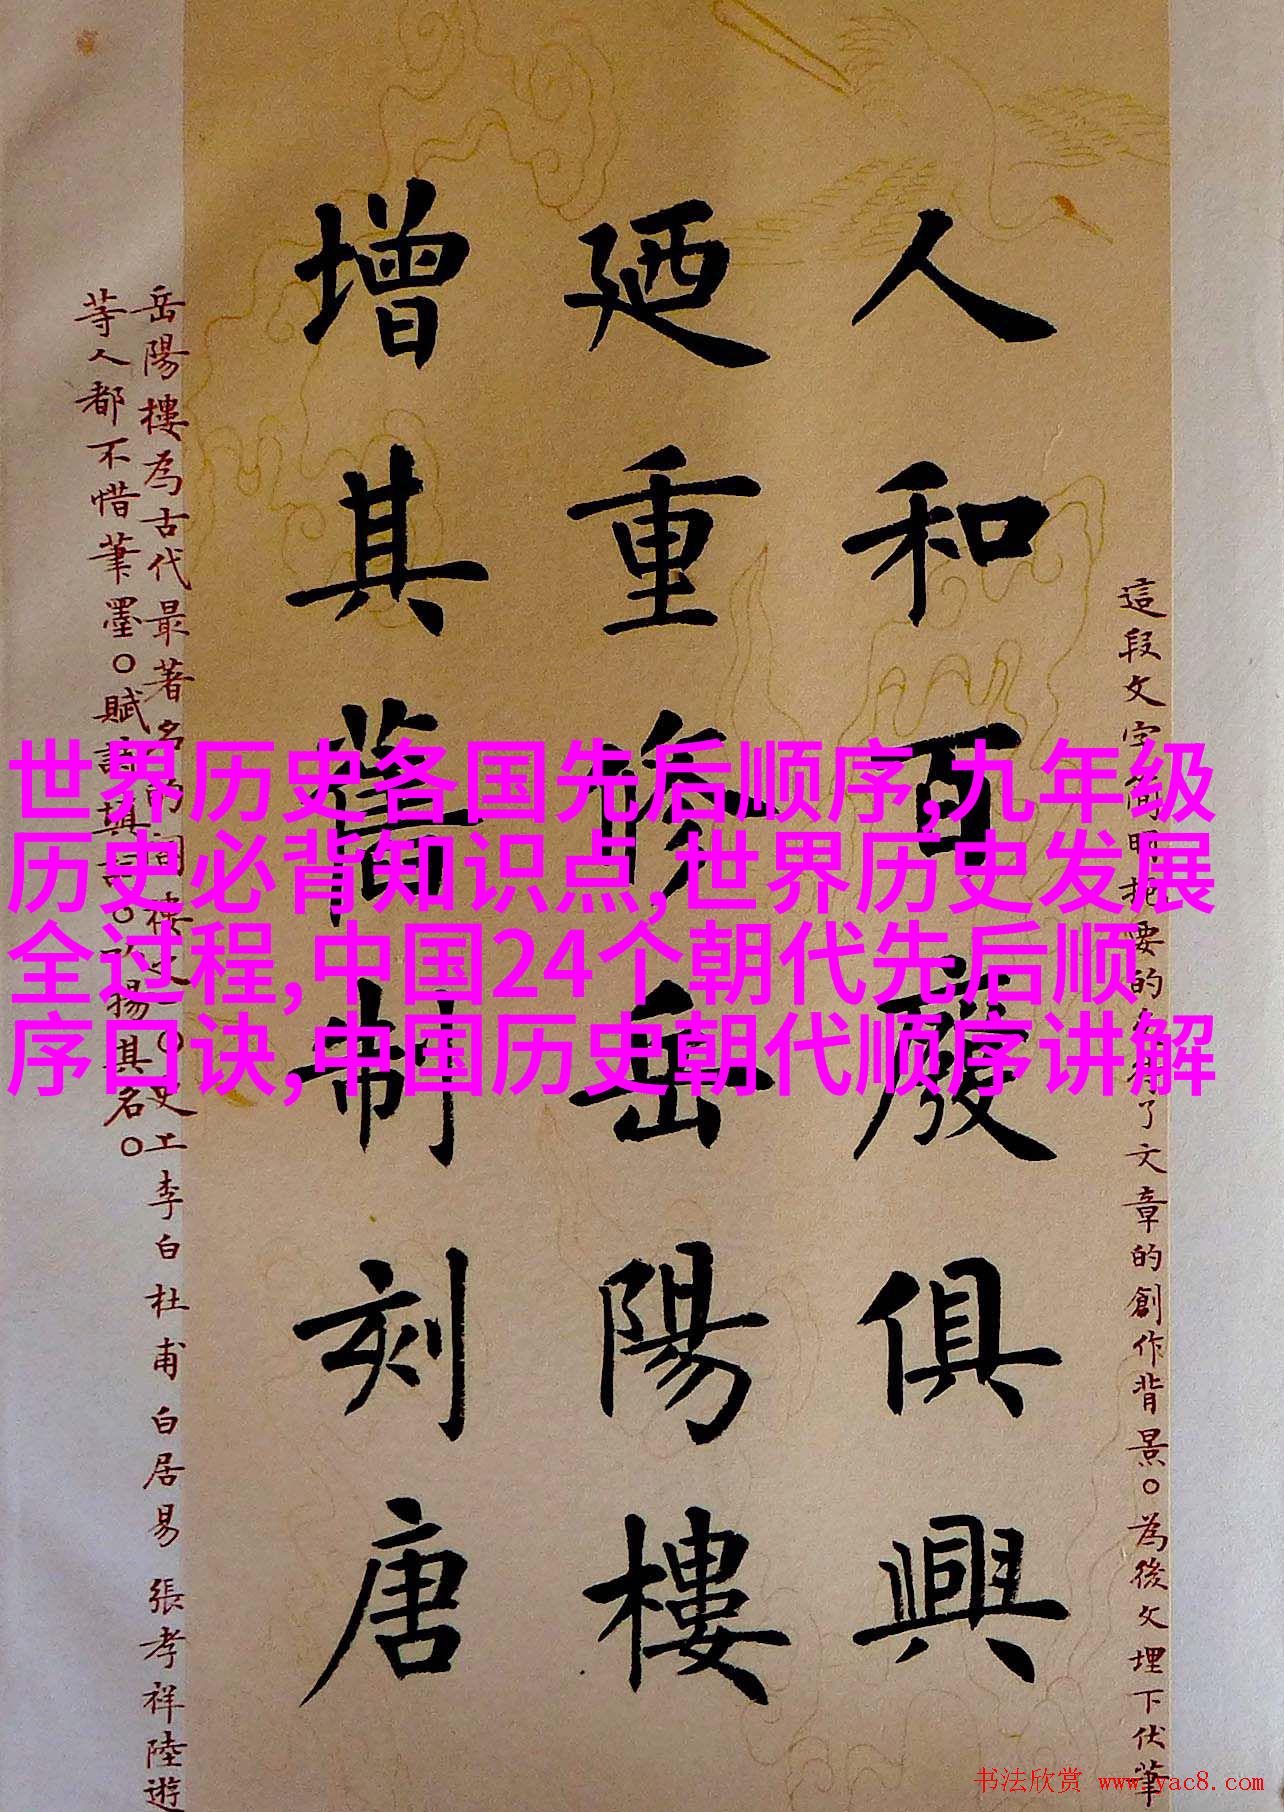 這段文字簡明扼要的了文章的創作背景。為後文埋下伏筆
人和百廢俱興
廼重修岳陽樓
增其舊制刻唐
岳陽樓為古代最著名李白杜甫白居易張孝祥陸遊
等人都不惜筆墨。賦詩其。揚其名。
世界历史各国先后顺序,九年级
历史必背知识点,世界历史发展
全过程,中国24个朝代先后顺
序口诀,中国历史朝代顺序讲解
书法欣赏 www.yac8.com